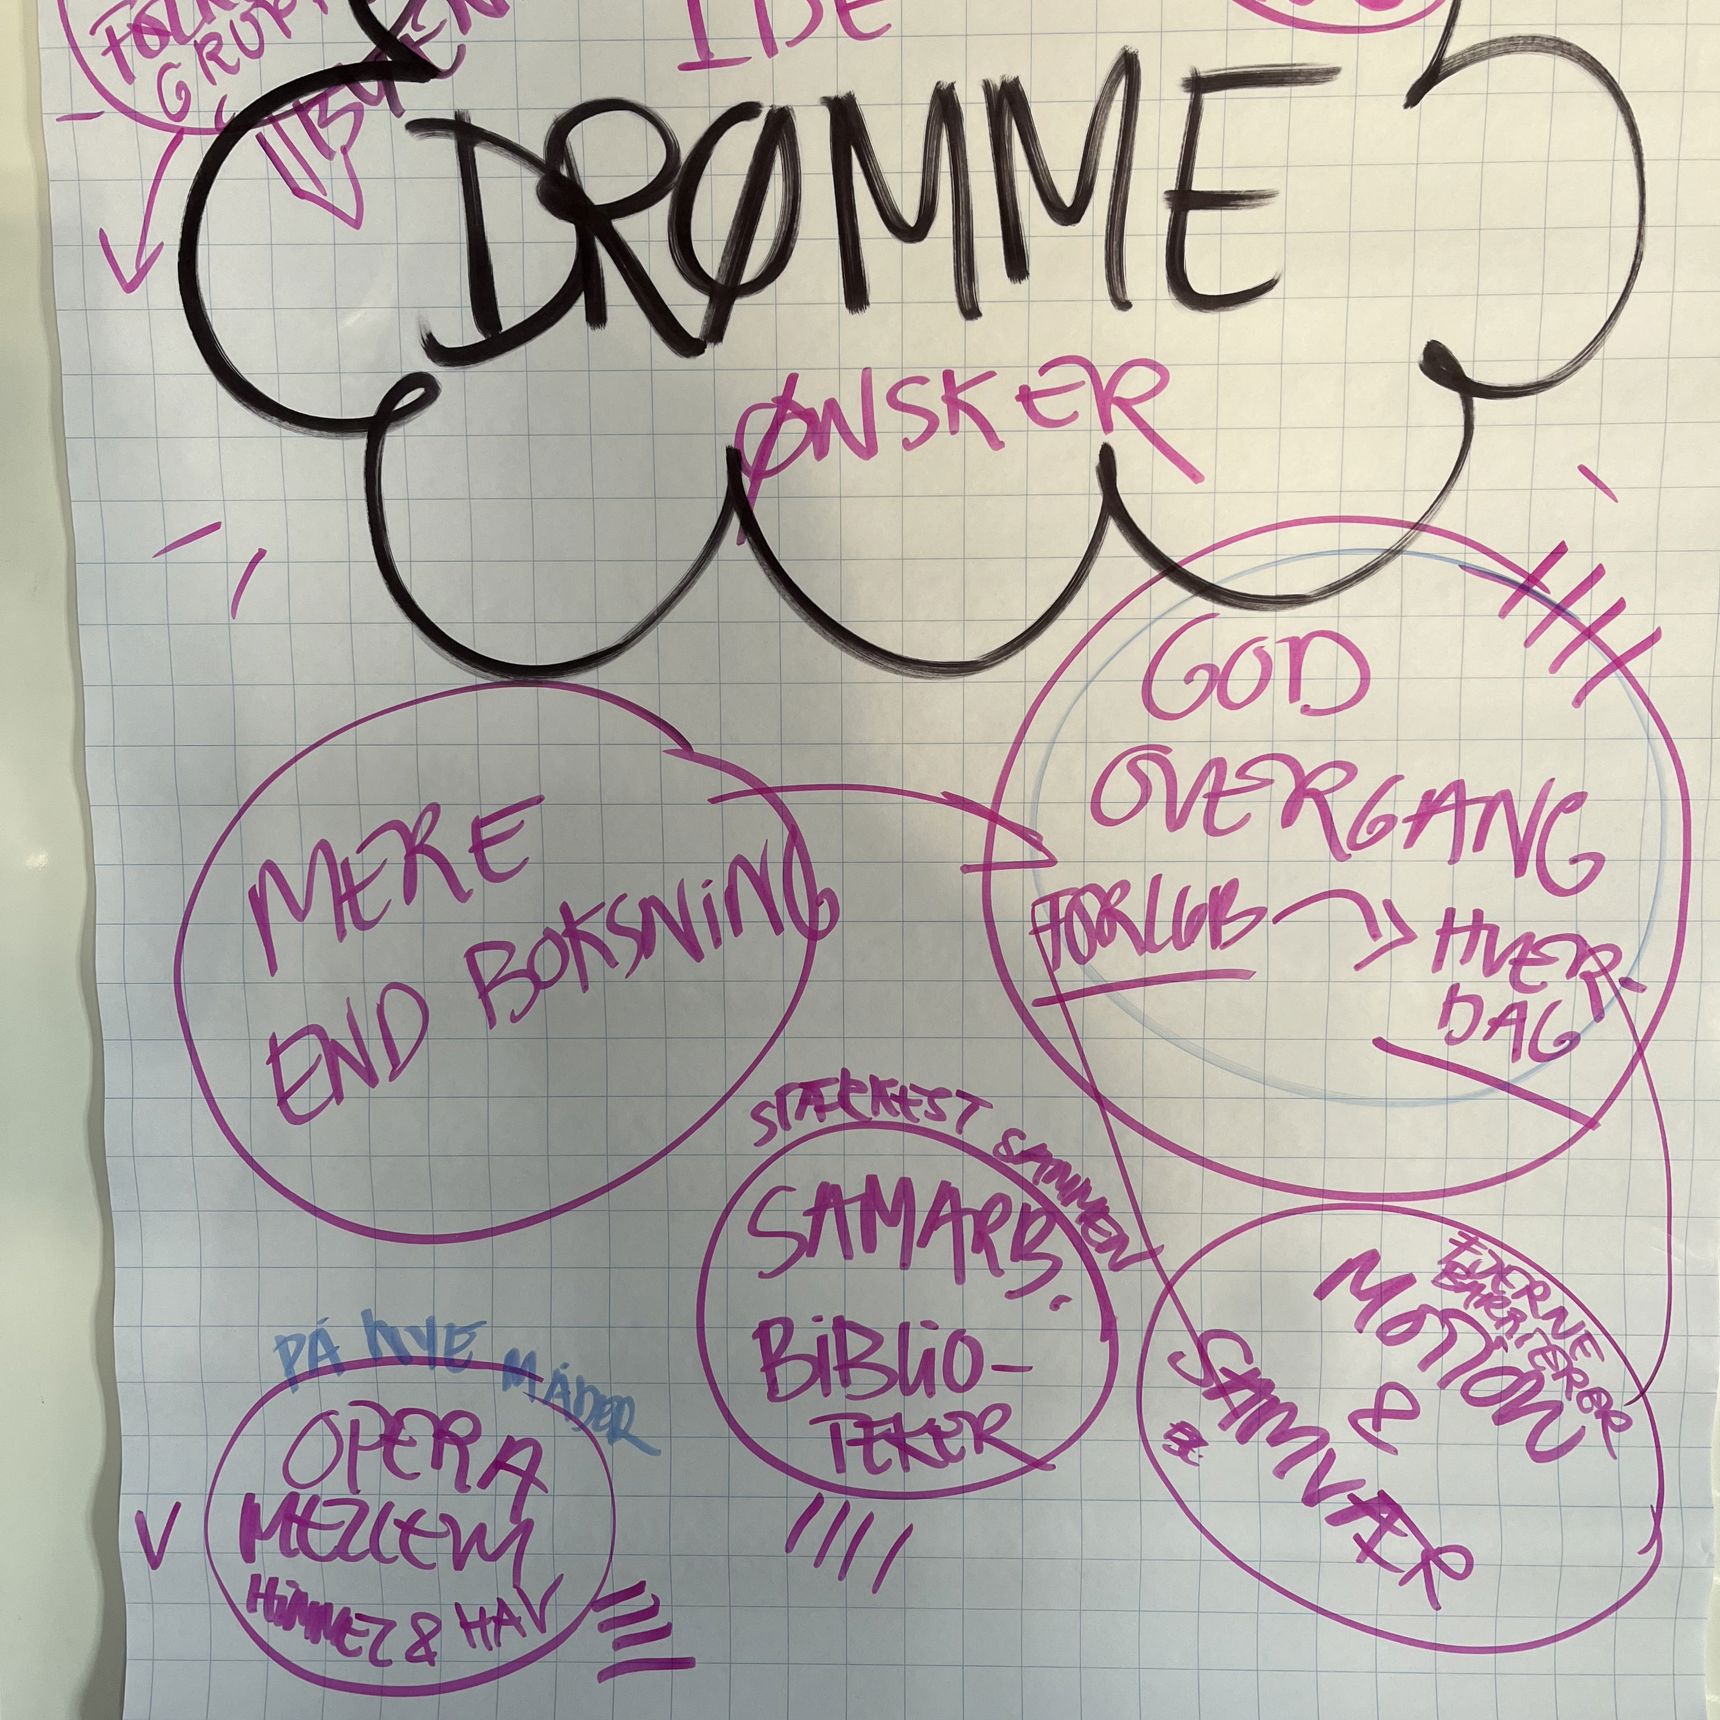 GRUP
IDE
BYEN
DRØMME
ØNSKER
GOD
OVERGANG
FORLØB → HVER-
DAG
MERE
END BOKSNING
STÆRKEST SAMMEN
SAMARB.
BIBLIO-
TEKER
FJERNE
BARRIERER
MOTION
&
SAMVÆR
PÅ NYE MÅDER
OPERA
MELLEM
HIMMEL & HAV
V